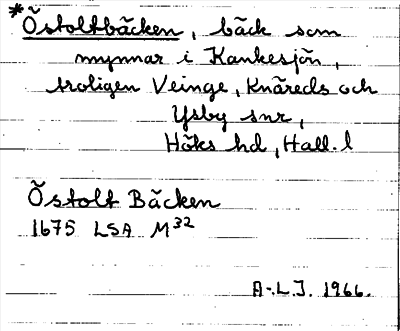 *Östoltbäcken, bäck som
mynnar i Kankesjön,
troligen Veinge, Knäreds och
Ysby snr,
Höks hd, Hall. l
Östolt Bäcken
1675 LSA M³²
A-L.J. 1966.